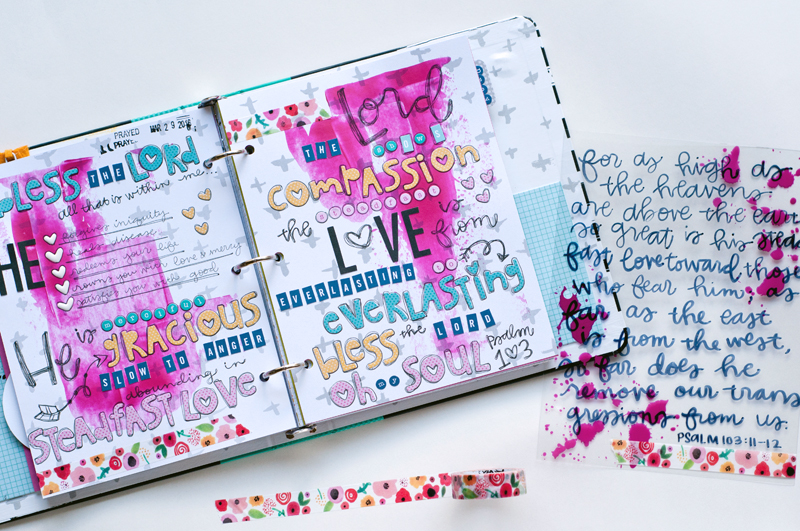 PRAYED
MAR 29 2016
BLESS THE LORD
all that is within me...
HE
forgives iniquity
heals disease
redeems your life
crowns you with love & mercy
satisfies you with good
He is merciful
GRACIOUS
SLOW TO ANGER
abounding in
STEADFAST LOVE
Lord
THE
COMPASSION
the LOVE is from
EVERLASTING to
EVERLASTING
bless the LORD
oh my SOUL
Psalm 103
for as high as
the heavens
are above the earth
so great is his stead
fast love toward those
who fear him as
far as the east
is from the west,
so far does he
remove our trans
gressions from us.
PSALM 103:11-12